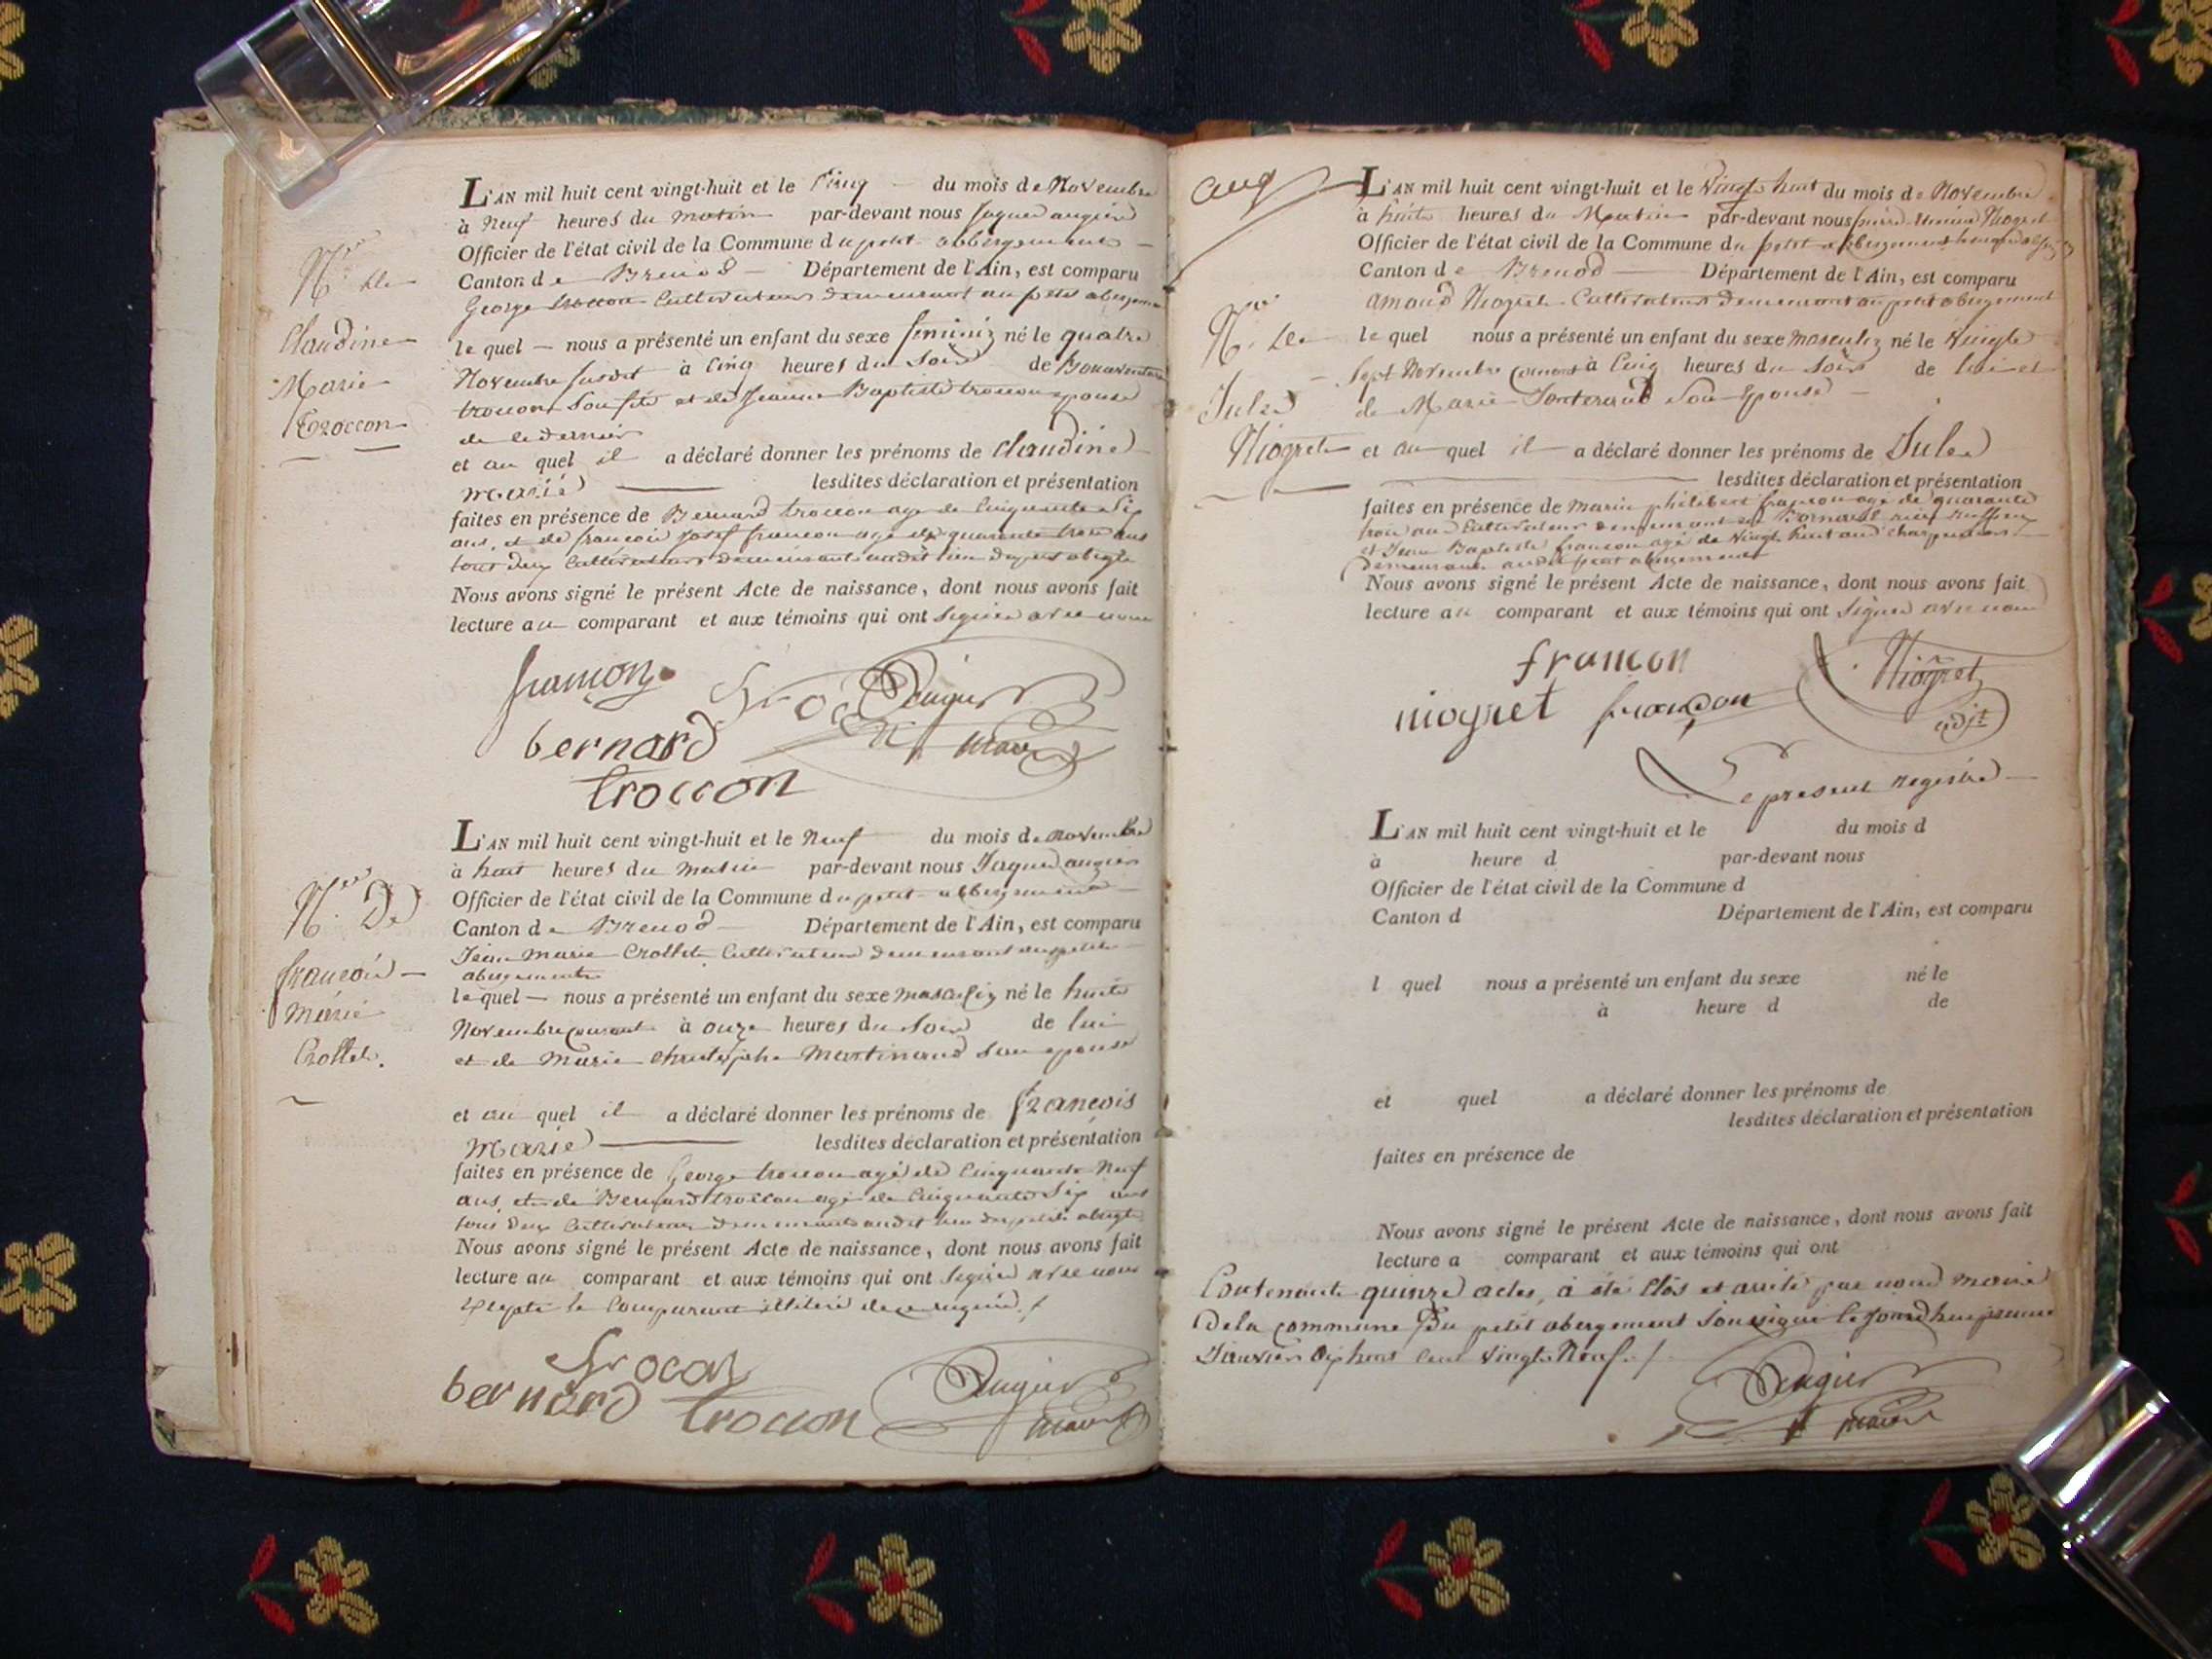 Nce de
Claudine
Marie
Troccon
L'AN mil huit cent vingt-huit et le Cinq du mois de Novembre
à Neuf heures du matin par-devant nous Jaques augier
Officier de l'état civil de la Commune du petit abbergement
Canton de Brenod Département de l'Ain, est comparu
George troccon Cultivateur demeurant au petit abergement
le quel nous a présenté un enfant du sexe feminin né le quatre
Novembre susdit à Cinq heures du Soir de Bonaventure
troccon Son fils et de Jeanne Baptiste troccon epouse
de ce dernier
et au quel il a déclaré donner les prénoms de Claudine
marie lesdites déclaration et présentation
faites en présence de Bernard troccon age de Cinquante Six
ans, et de francois josef francon age de quarante trois ans
tous deux Cultivateurs demeurants audit lieu du petit abgt
Nous avons signé le présent Acte de naissance, dont nous avons fait
lecture au comparant et aux témoins qui ont Signé avec nous
francon
Augier
bernard maire
troccon
Nce De
francois
marie
Crollet.
L'AN mil huit cent vingt-huit et le Neuf du mois de Novembre
à huit heures du matin par-devant nous Jaques augier
Officier de l'état civil de la Commune du petit abbergement
Canton de Brenod Département de l'Ain, est comparu
Jean marie Crollet Cultivateur demeurant au petit
abergement
le quel nous a présenté un enfant du sexe masculin né le huit
Novembre courant à onze heures du Soir de lui
et de Marie Christophe Martinand son epouse
et au quel il a déclaré donner les prénoms de françois
Marie lesdites déclaration et présentation
faites en présence de George troccon agé de Cinquante Neuf
ans, et de Bernard troccon agé de Cinquante Six ans
tous deux Cultivateurs demeurants audit lieu du petit abgt
Nous avons signé le présent Acte de naissance, dont nous avons fait
lecture au comparant et aux témoins qui ont Signé avec nous
Excepté le Comparant illiteré de ce requis./
bernard troccon Augier
maire
aug
Nce de
Jules
Niogret
L'AN mil huit cent vingt-huit et le Vingt huit du mois de Novembre
à huit heures du Matin par-devant nous Niogret
Officier de l'état civil de la Commune du petit abbergement
Canton de Brenod Département de l'Ain, est comparu
amand Niogret Cultivateur demeurant au petit abergement
le quel nous a présenté un enfant du sexe masculin né le Vingt
Sept Novembre Courant à Cinq heures du Soir de lui et
de Marie Son Epouse
et au quel il a déclaré donner les prénoms de Jules
lesdites déclaration et présentation
faites en présence de marin philibert francon agé de quarante
trois ans Cultivateur demeurant
et Jean Baptiste francon agé de Vingt huit ans charpentier
demeurant audit petit abergement
Nous avons signé le présent Acte de naissance, dont nous avons fait
lecture au comparant et aux témoins qui ont Signés avec nous
francon Niogret
niogret françon adjt
Le present Registre
L'AN mil huit cent vingt-huit et le du mois d
à heure d par-devant nous
Officier de l'état civil de la Commune d
Canton d Département de l'Ain, est comparu
l quel nous a présenté un enfant du sexe né le
à heure d de
et quel a déclaré donner les prénoms de
lesdites déclaration et présentation
faites en présence de
Nous avons signé le présent Acte de naissance, dont nous avons fait
lecture a comparant et aux témoins qui ont
Contenant quinze actes, à été Clos et arrêté par nous maire
de la commune Du petit abergement Soussigné le premier
Janvier dix huit cent vingt Neuf./
Augier
maire